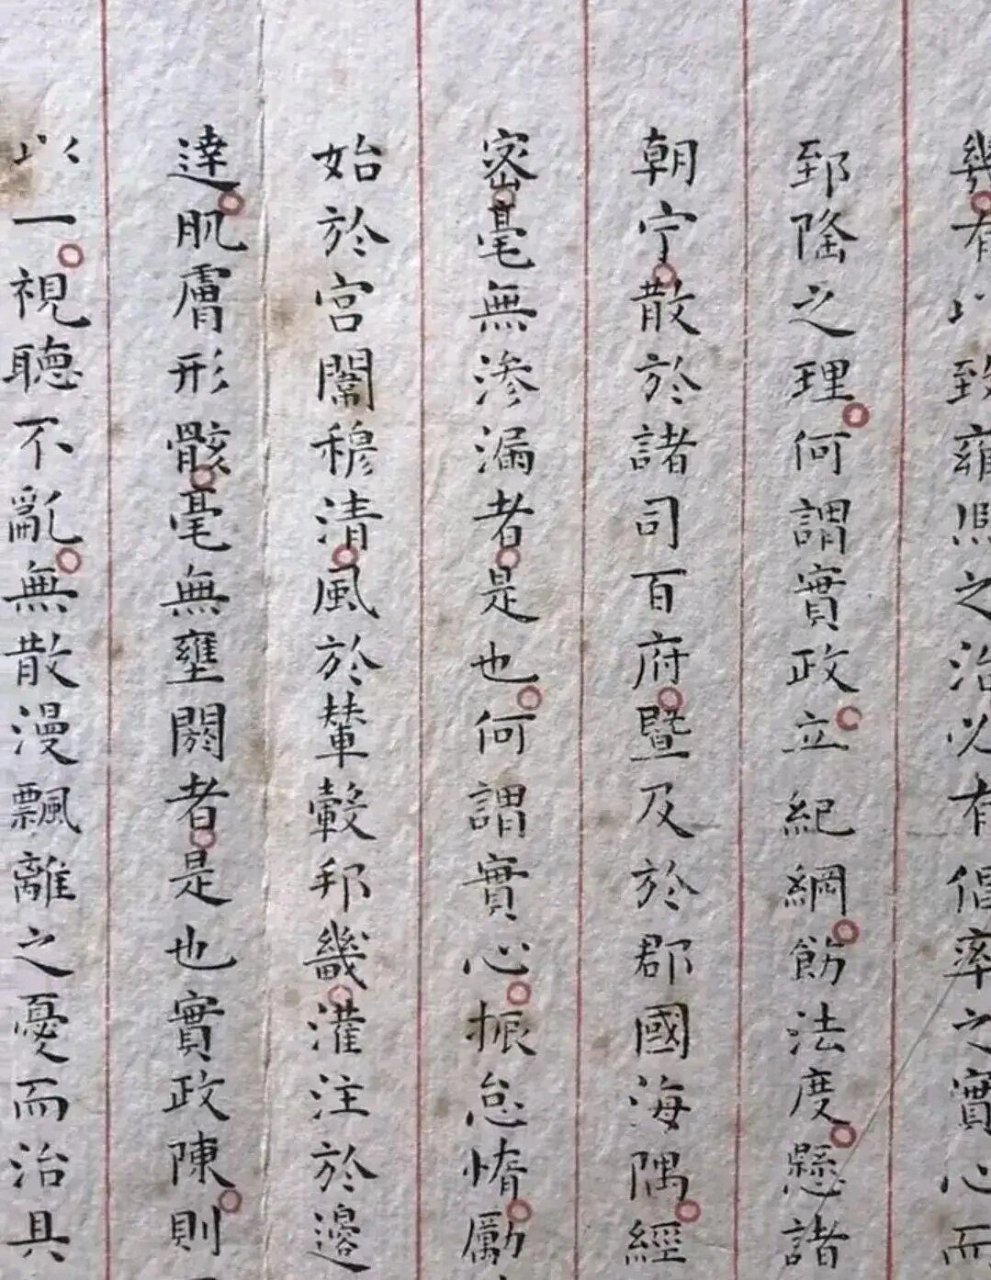 幾有以致雍熙之治必有倡率之實心而
郅隆之理何謂實政立紀綱飭法度懸諸
朝宁散於諸司百府暨及於郡國海隅經
密毫無滲漏者是也何謂實心振怠惰勵
始於宮闈穆清風於輦轂邦畿灌注於邊
達肌膚形骸毫無壅閼者是也實政陳則
以一視聽不亂無散漫飄離之憂而治具